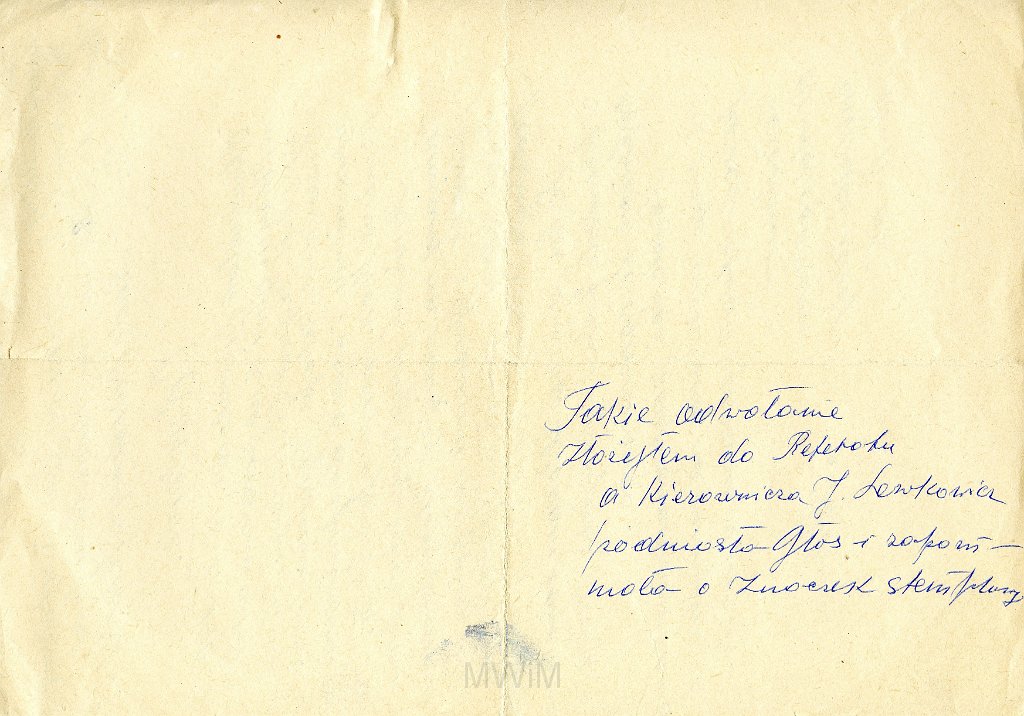 Takie odwołanie
złożyłem do Referatu
a Kierownicza J. Lewkowicz
podniosła Głos i zapom-
niała o znaczek stemplowy
MWiM